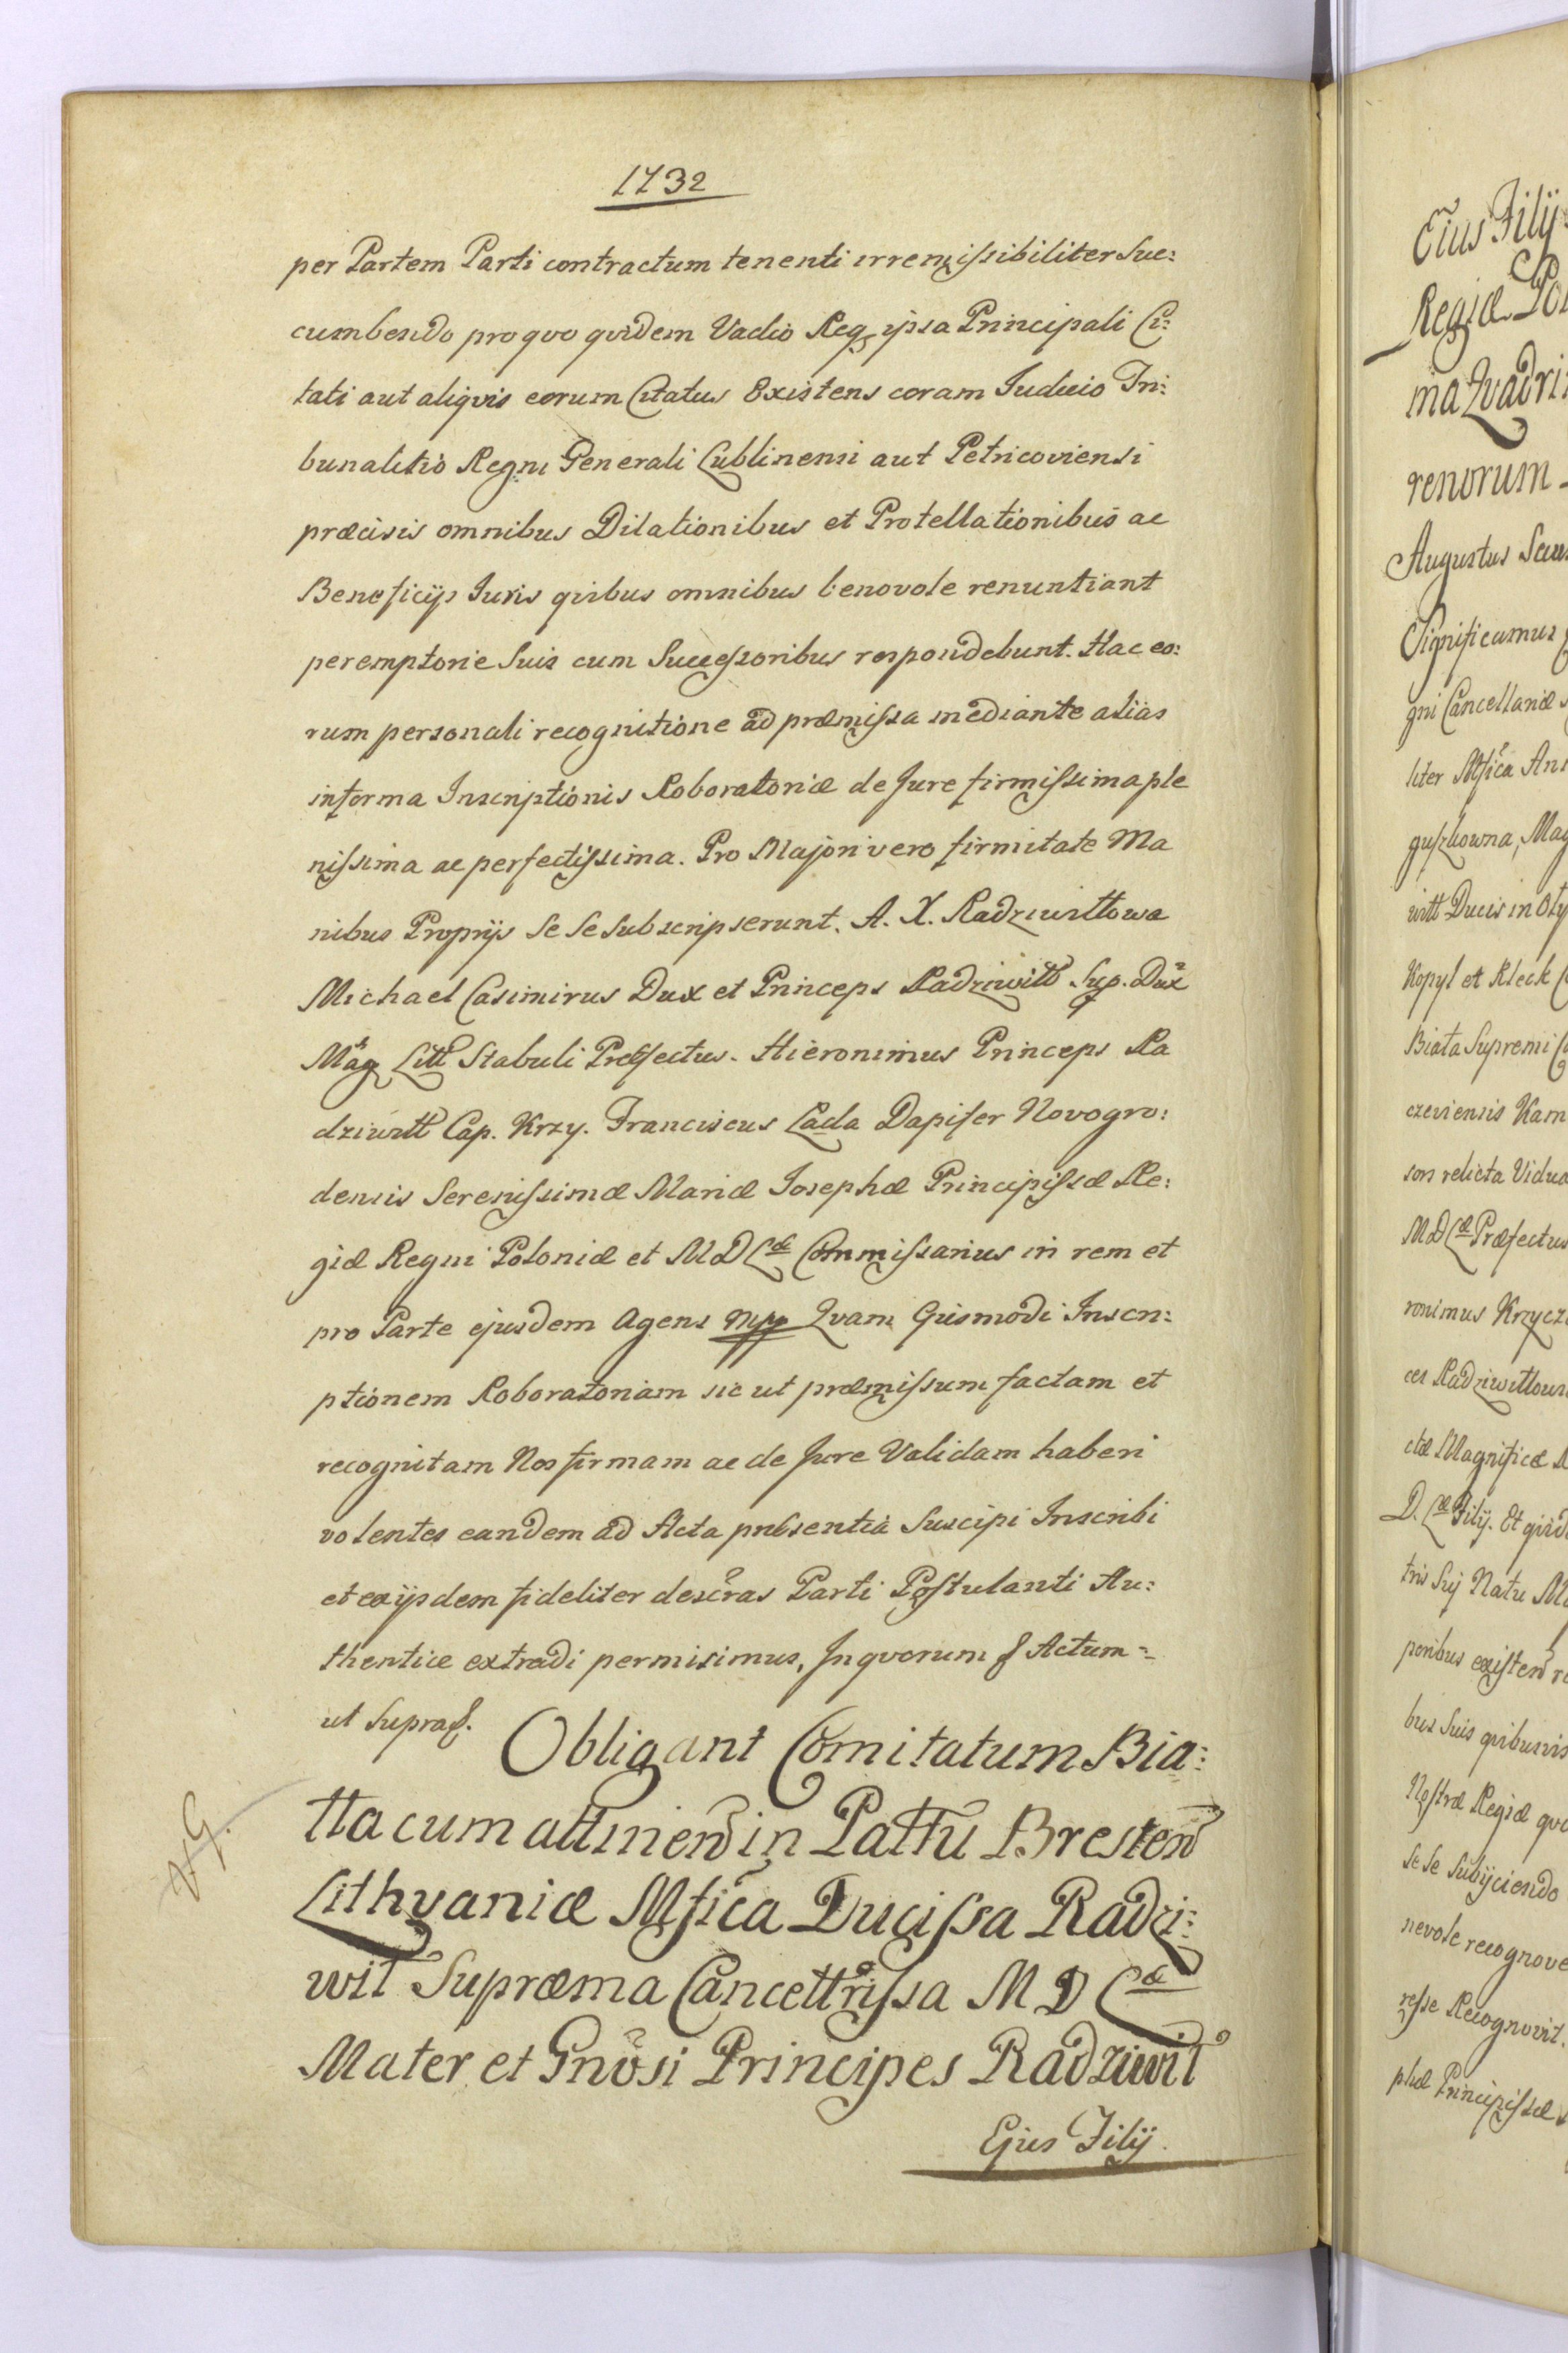 1732
per Partem Parti contractum tenenti irremissibiliter Suc:
cumbendo pro qvo qvidem Vadio Req ipsa Principali Ci:
tati aut aliqvis eorum Citatus Existens coram Judicio Tri:
bunalitio Regni Generali Lublinensi aut Petricoviensi
præcisis omnibus Dilationibus et Protellationibus ac
Beneficijs Iuris qvibus omnibus benevole renuntiant
peremptorie Suis cum Successoribus respondebunt. Hac eo:
rum personali recognitione ad præmissa mediante alias
in forma Inscriptionis Roboratoriæ de Jure firmissima ple
nissima ac perfectissima. Pro Majori vero firmitate Ma
nibus Proprijs Se Se Subscripserunt. A. X. Radziwiłłowa
Michael Casimirus Dux et Princeps Radziwiłł Sup. Dux
Mag Litt Stabuli Præfectus. Hieronimus Princeps Ra
dziwiłł Cap. Krzy. Franciscus Łada Dapifer Novogro:
densis Serenissimæ Mariæ Josephæ Principissæ Re:
giæ Regni Poloniæ et M D L æ Commissarius in rem et
pro Parte ejusdem Agens mpp Qvam Ejusmodi Inscri:
ptionem Roboratoriam sic ut præmissum factam et
recognitam Nos firmam ac de Jure Validam haberi
volentes eandem ad Acta præsentia Suscipi Inscribi
et ex ijsdem fideliter descras Parti Postulanti Au:
thentice extradi permisimus, In qvorum f Actum =
ut Supra f.
Obligant Comitatum Bia:
łła cum attinen in Pałłu Bresten
Lithvaniæ Mfica Ducissa Radzi:
wił Supræma Cancellrissa M D L æ
Mater et Gnosi Principes Radziwił
Ejus Filij.
Ejus Filij
Regiæ
ma Qvadri
renorum
Augustus
Significamus
gni Cancellariæ
liter Mfica An
guszkowna, Mag
wiłł Ducis in Oły
Kopyl et Kleck
Biała Supremi
czeviensis Kam
sori relicta Vidua
M D L æ Præfectus
ronimus Krzycz
ces Radziwiłłowi
ctæ Magnificæ
D. L æ Filij. Et qvid
tris Sụj Natu
poribus existen
bus Suis qvibusvis
Nostræ Regiæ qvo
Se Se Subijciendo
nevole recognove
resse Recognovit.
phæ Principissæ